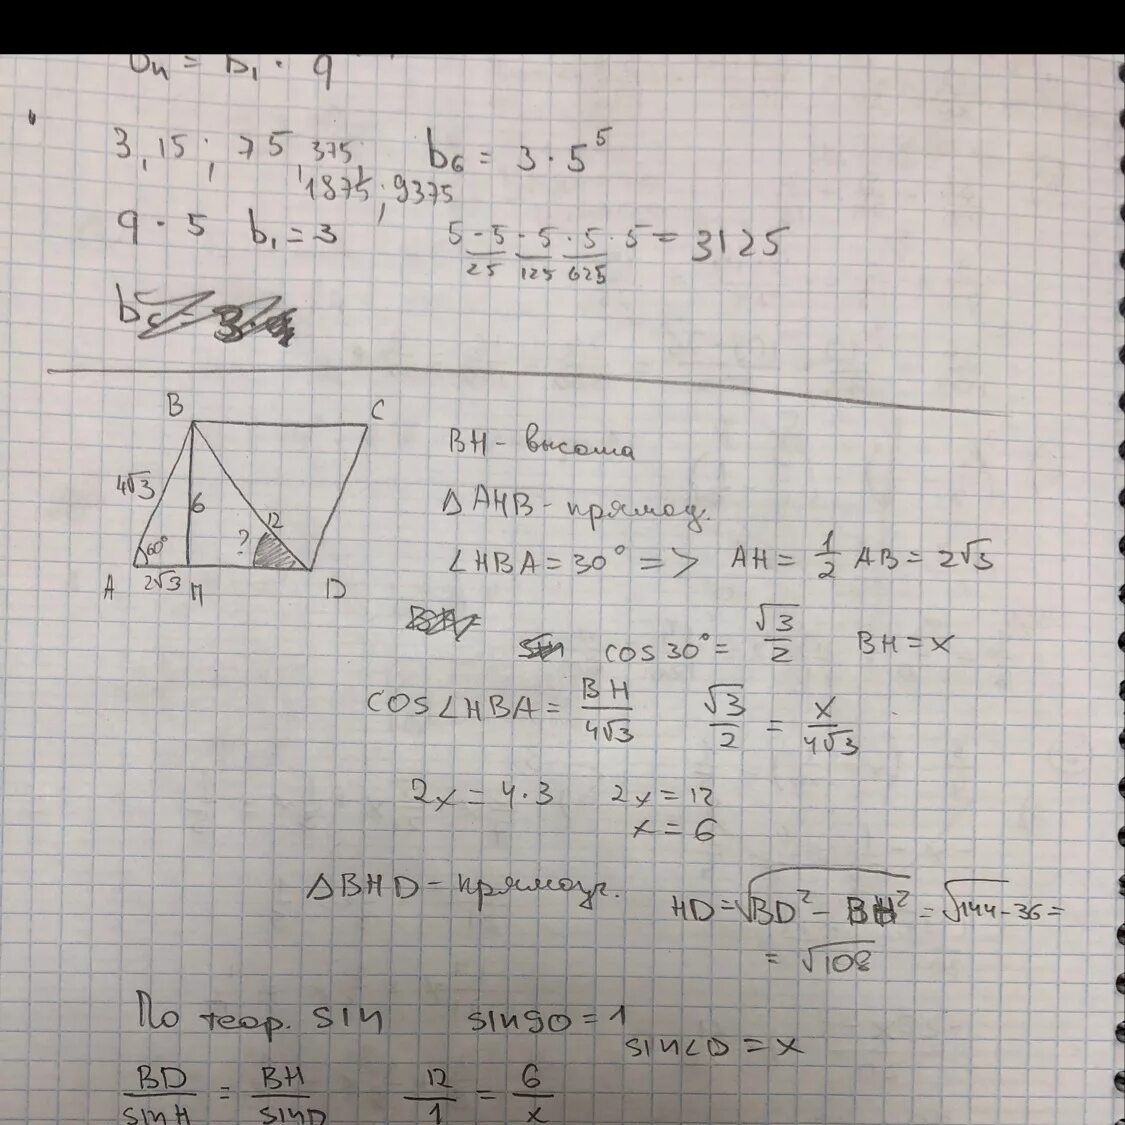 bn = b₁ · q
3, 15; 75, 375, b₆ = 3 · 5⁵
1875; 9375
q · 5 b₁ = 3 5 · 5 · 5 · 5 · 5 = 3125
25 125 625
B C
4√3 6 12
60° ?
A 2√3 H D
BH - высота
△AHB - прямоуг.
∠HBA = 30° => AH = 1/2 AB = 2√3
cos 30° = √3/2 BH = x
cos∠HBA = BH/4√3 √3/2 = x/4√3
2x = 4·3 2x = 12
x = 6
△BHD - прямоуг. HD = √BD² - BH² = √144 - 36 =
= √108
По теор. sin sin90 = 1
sin∠D = x
BD/sinH = BH/sinD 12/1 = 6/x